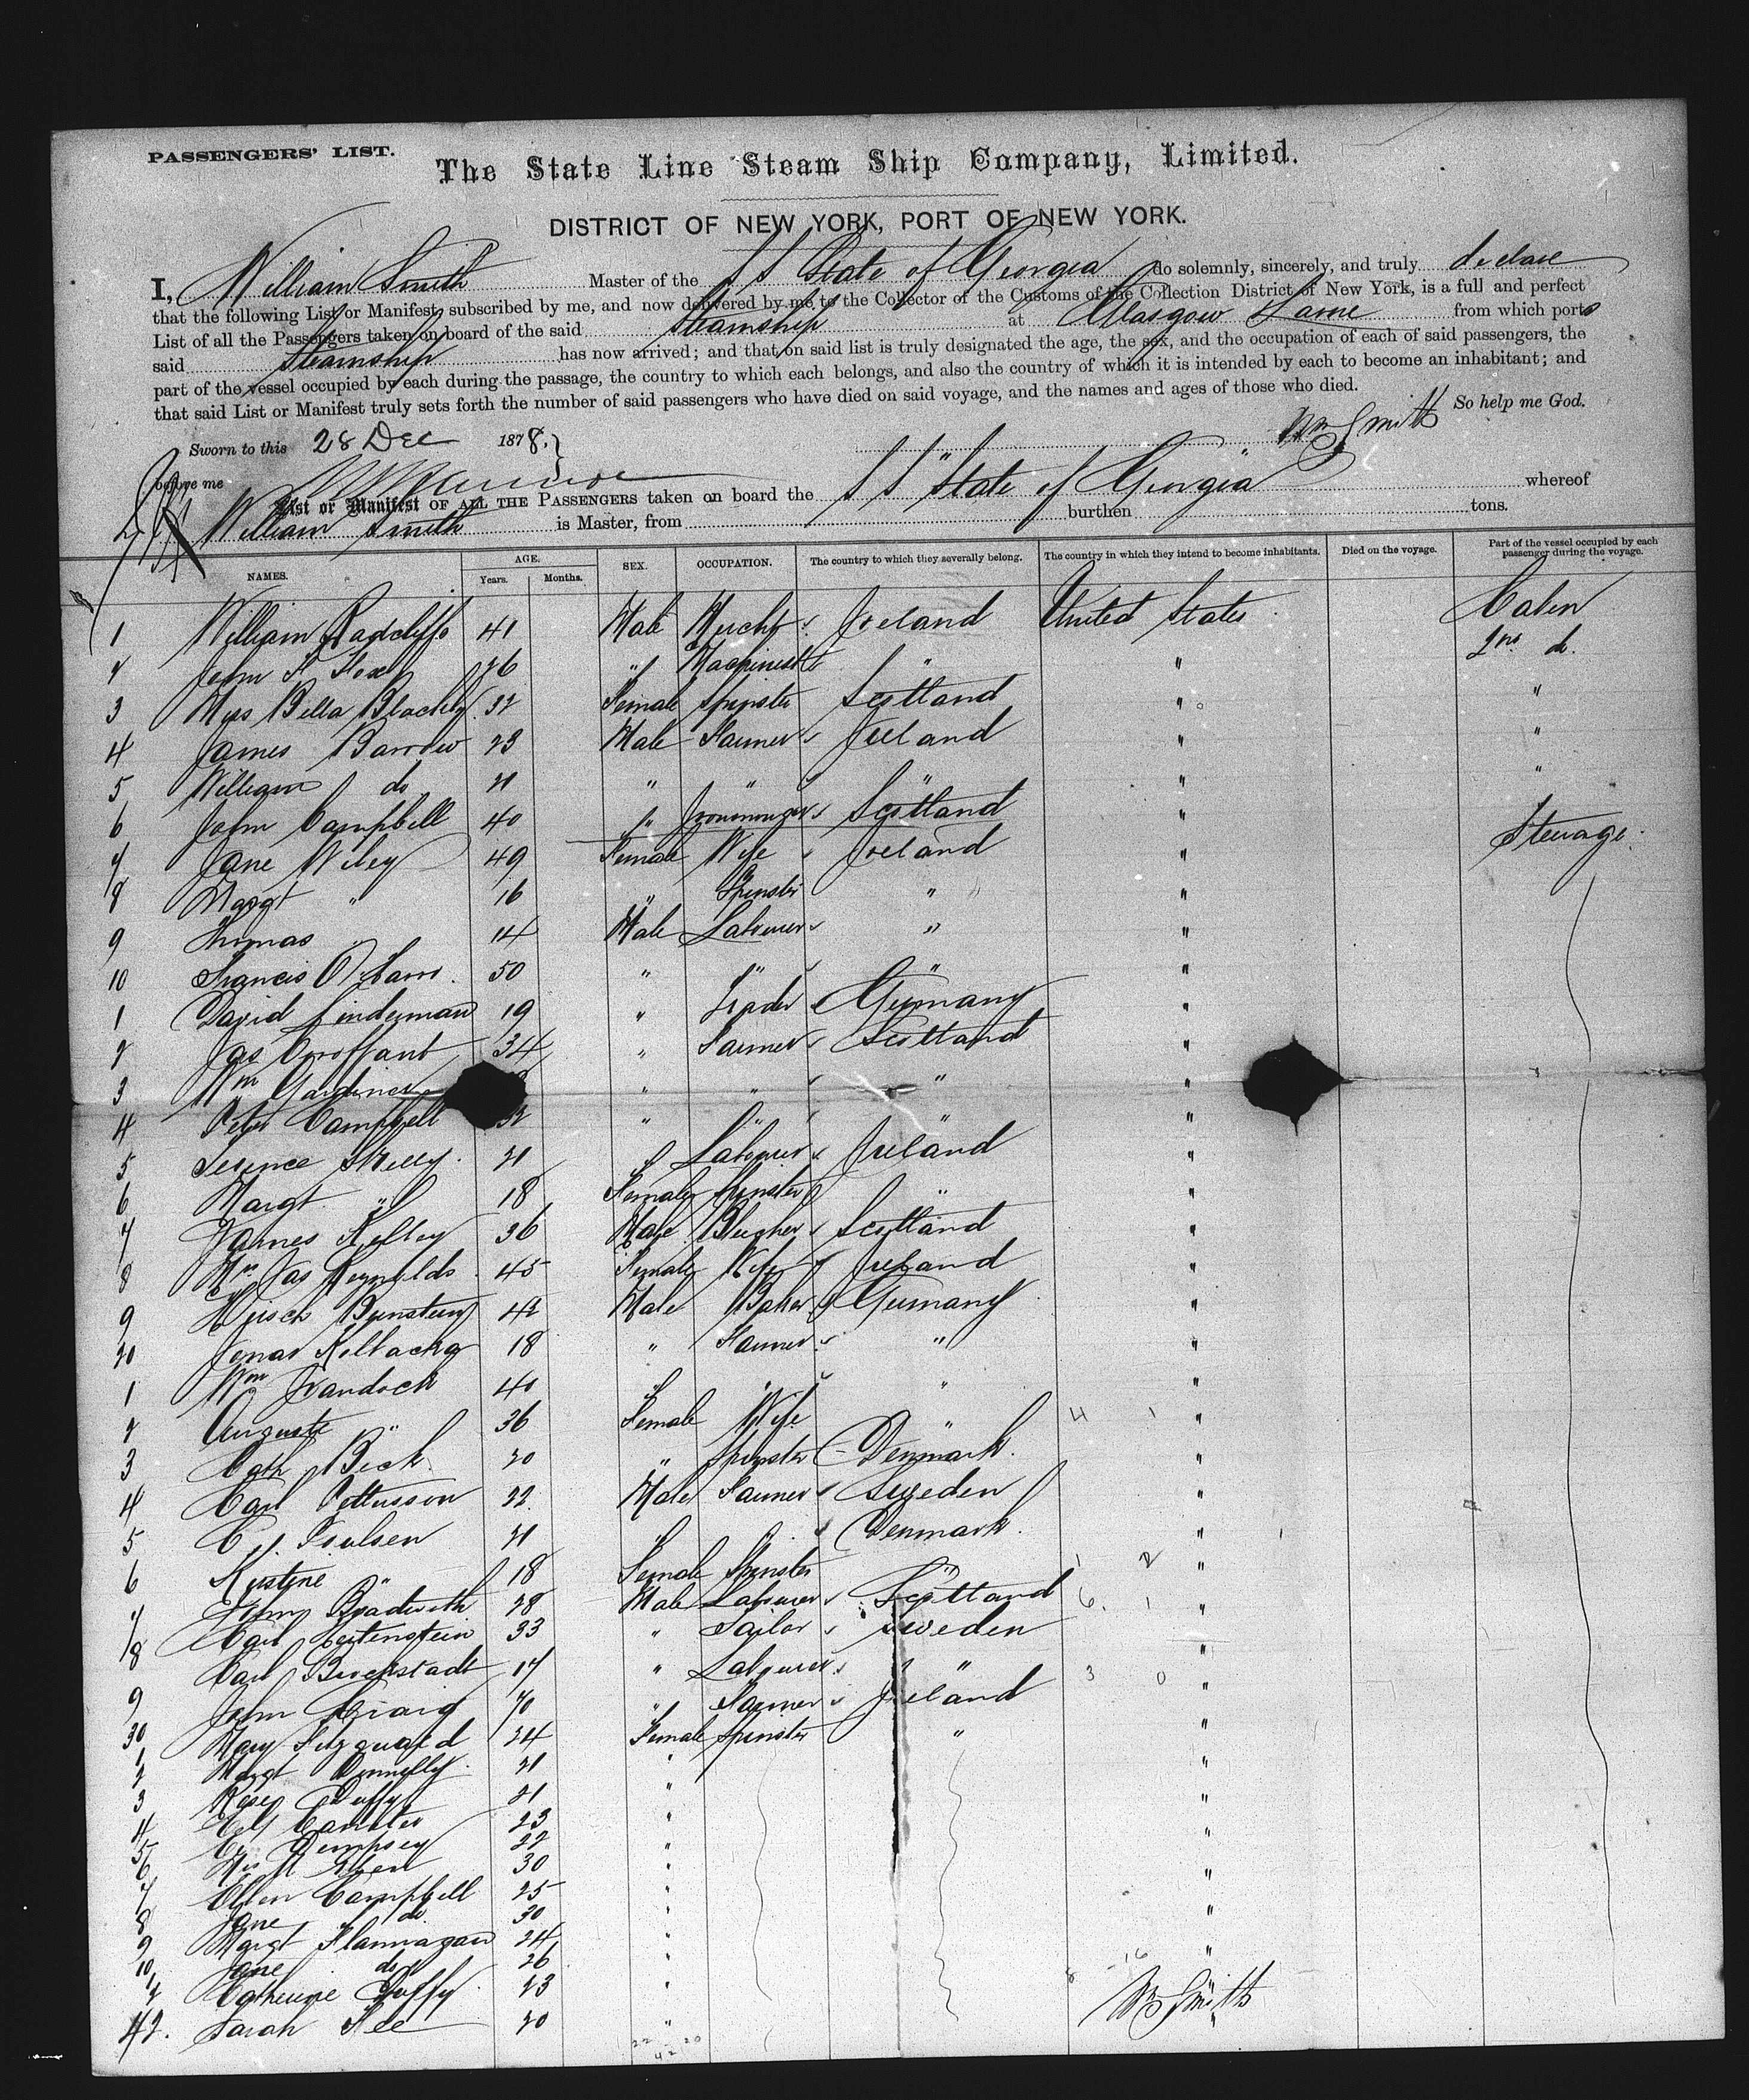 PASSENGERS' LIST.
The State Line Steam Ship Company, Limited.
DISTRICT OF NEW YORK, PORT OF NEW YORK.
I, William Smith Master of the SS State of Georgia do solemnly, sincerely, and truly declare
that the following List or Manifest, subscribed by me, and now delivered by me to the Collector of the Customs of the Collection District of New York, is a full and perfect
List of all the Passengers taken on board of the said Steamship at Glasgow Larne from which ports
said Steamship has now arrived; and that on said list is truly designated the age, the sex, and the occupation of each of said passengers, the
part of the vessel occupied by each during the passage, the country to which each belongs, and also the country of which it is intended by each to become an inhabitant; and
that said List or Manifest truly sets forth the number of said passengers who have died on said voyage, and the names and ages of those who died.
So help me God.
Sworn to this 28 Dec 1878. Wm Smith
before me
List or Manifest OF ALL THE PASSENGERS taken on board the SS "State of Georgia" whereof
William Smith is Master, from burthen tons.
NAMES. AGE. Years. Months. SEX. OCCUPATION. The country to which they severally belong. The country in which they intend to become inhabitants. Died on the voyage. Part of the vessel occupied by each passenger during the voyage.
1 William Radcliffe 41 Male Mercht Ireland United States Cabin
2 John F 26 " Machinist " " 2nd do.
3 Miss Bella 32 Female Spinster Scotland " "
4 James Barrow 23 Male Farmer Ireland " "
5 William do 21 " " " " "
6 John Campbell 40 " Ironmonger Scotland "
7 Jane Wiley 49 Female Wife Ireland " Steerage.
8 Margt " 16 " Spinster " "
9 Thomas " 14 Male Labourer " "
10 Francis 50 " " " "
1 David Linderman 19 " Trader Germany "
2 Jas 34 " Farmer Scotland "
3 Wm Gardiner " " " "
4 Peter Campbell 32 " " " "
5 Terence 21 " Labourer Ireland "
6 Margt " 18 Female Spinster " "
7 James Kelley 36 Male Scotland "
8 Mrs Jas Reynolds 45 Female Wife Ireland "
9 Hirsch 42 Male Baker Germany "
20 Jonas 18 " Farmer " "
1 Wm 40 " " " "
2 Auguste " 36 Female Wife " "
3 Cath Beck 20 " Spinster Denmark. "
4 Carl Pettersson 22 Male Farmer Sweden "
5 C. J. Poulsen 21 " " Denmark. "
6 Kirstine " 18 Female Spinster " "
7 John 28 Male Labourer Scotland "
8 Carl 33 " Tailor Sweden "
Carl 17 " Labourer " "
9 John Craig 70 " Farmer Ireland "
30 Mary Fitzgerald 24 Female Spinster " "
1 Margt Donnelly 21 " "
2 Rose Duffy 21 " "
3 23 " "
4 Dempsey 22 "
5 30 "
6 Ellen Campbell 25 "
7 Jane do. 30 "
8 Margt Flannagan 24 "
9 Jane do 26 "
10 Catherine Duffy 23 "
42. Sarah Kee 20 "
Wm Smith
22 20
42